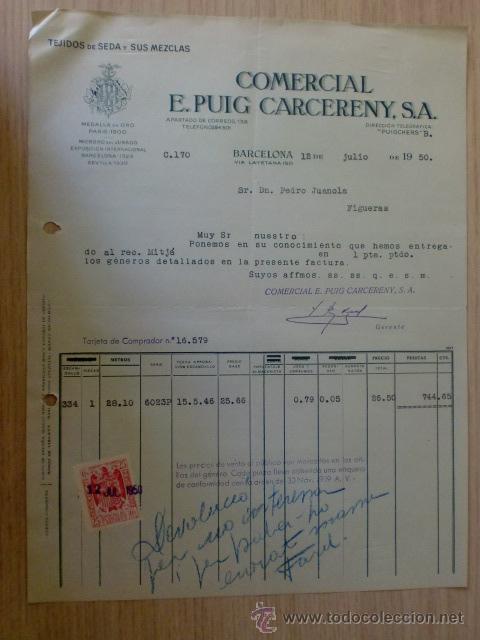 TEJIDOS DE SEDA Y SUS MEZCLAS
COMERCIAL
E. PUIG CARCERENY, S.A.
MEDALLA DE ORO
PARIS-1900
MIEMBRO DEL JURADO
EXPOSICION INTERNACIONAL
BARCELONA-1929
SEVILLA-1930
APARTADO DE CORREOS,
TELEFONO
DIRECCION TELEGRAFICA
"PUIGCHERS" B.
C.170
BARCELONA 12 DE julio DE 19 50.
VIA LAYETANA
Sr. Dn. Pedro Juanola
Figueras
Muy Sr nuestro:
Ponemos en su conocimiento que hemos entrega-
do al rec. Mitjá en 1 pta. ptdo.
los géneros detallados en la presente factura.
Suyos affmos. ss. ss. q. e. s. m.
COMERCIAL E. PUIG CARCERENY, S. A.
Gerente
Tarjeta de Comprador n.º 16.579
PIEZAS METROS SERIE PRECIO BASE PRECIO TOTAL PESETAS CTS.
334 1 28.10 6023P 15.5.46 25.66 0.79 0.05 26.50 744.65
Los precios de venta al público van marcados en los ori-
llos del género. Cada pieza lleva cosida una etiqueta
de conformidad con la orden de 33 Nov. 1939 A. V.-
12 JUL 1950
Devolució
per no interessar
i per haber-ho
enviat massa
tard.
todocoleccion.net